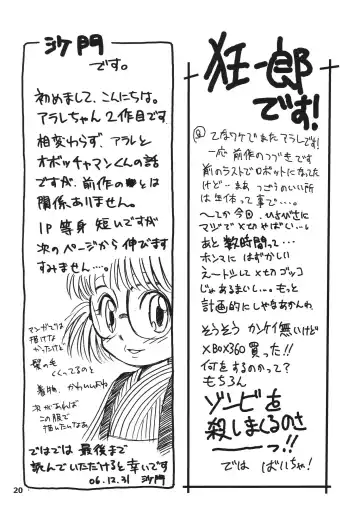 狂一郎
です!
と言うワケでまたアラレです!
一応 前作のつづきです
前のラストでロボットになってた
けど…まぁ つごうのいい所
は生体って事で…。
へてか今回、ひさびさに
マジで〆切ヤバい…。
あと数時間って…
ホンマに はずかしい
え〜トシして〆切ゴッコ
じゃあるまいし…。もっと
計画的にしなあかんわ
そうそう カンケイ無いけど
XBOX360 買った!!
何をするのかって?
もちろん
ゾンビを
殺しまくるのさ
ーーっ!!
では ばいちゃ!
沙門
です。
初めまして、こんにちは。
アラレちゃん2作目です
相変わらず、アラレと
オボッチャマンくんの話
ですが、前作のとは
関係ありません。
1P等身 短いですが
次のページから伸びます
すみません…。
マンガでは
描けな
かったけど
髪の毛
くくってるのと
着物、かわいいよね
次があれば
この服で
描いたいなあ
ではでは 最後まで
読んでいただけると幸いです
06.12.31 沙門
20